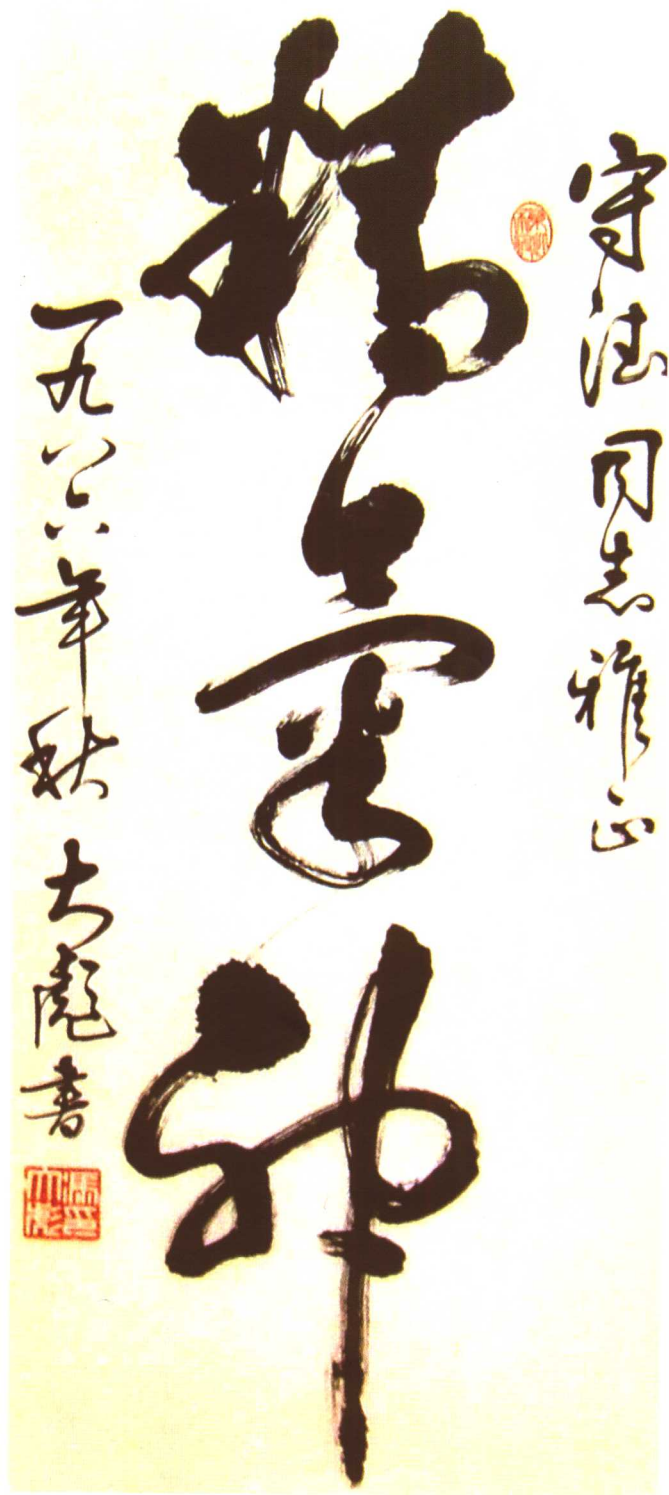 守法同志雅正
精气神
一九八六年秋
大彪书